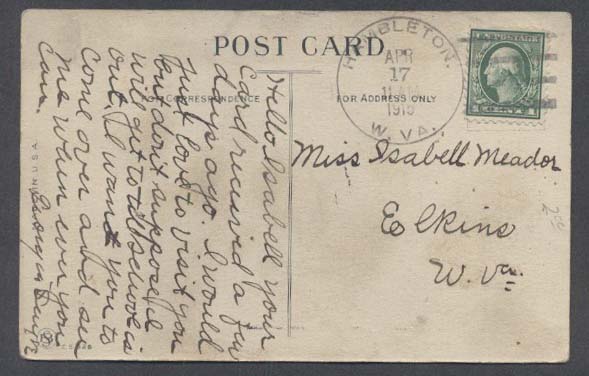 POST CARD
FOR CORRESPONDENCE
FOR ADDRESS ONLY
HAMBLETON,
APR
17
11 AM
W. VA.
U.S. POSTAGE
Miss Isabell Meador
Elkins
W. Va.
Hello Isabell your
Card received a few
days ago. I would
just love to visit you
but don't suppose I
will get to till school is
out. I want you to
Come over and see
me when ever you
Can.
Georgia
N U S A